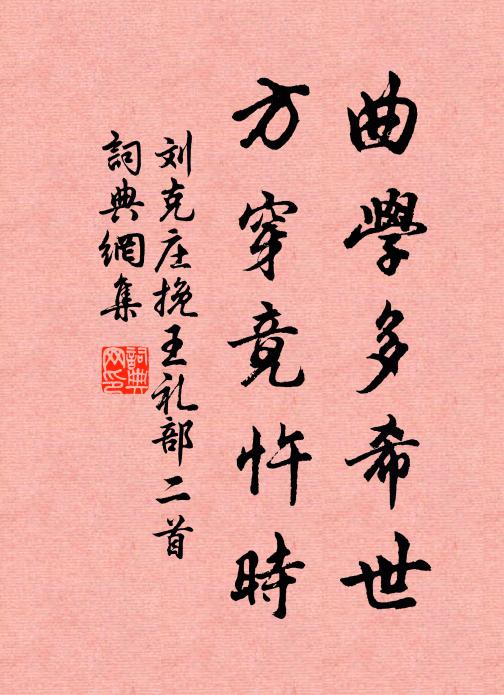 曲學多希世
方穿竟忤時
刘克庄挽王礼部二首
詞典網集
詞典網印